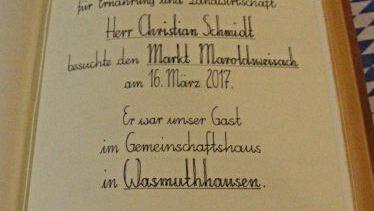 für Ernährung und Landwirtschaft
Herr Christian Schmidt
besuchte den Markt Maroldsweisach
am 16. März 2017.
Er war unser Gast
im Gemeinschaftshaus
in Wasmuthhausen.